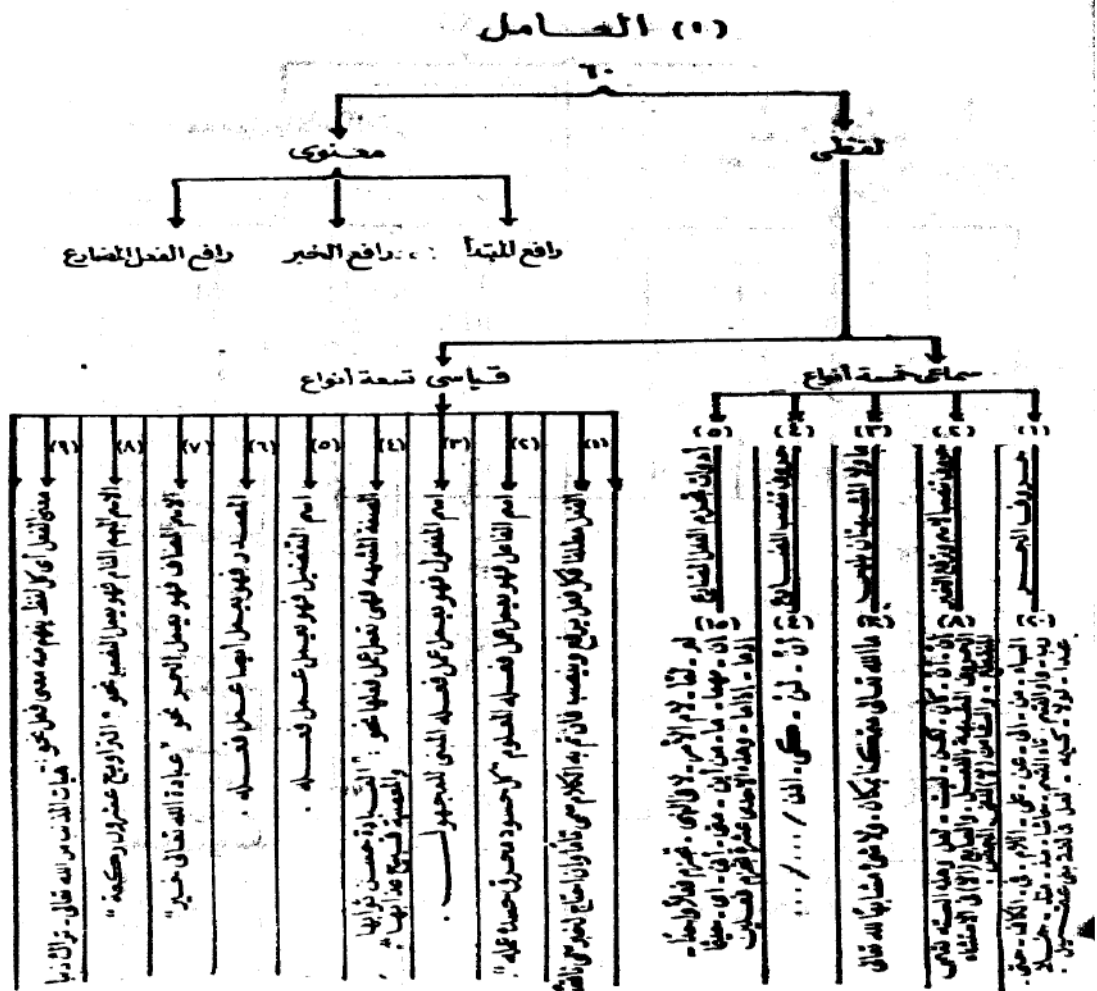 (١) العامل
٦٠
لفظى
معنوى
رافع المبتدأ
رافع الخبر
رافع الفعل المضارع
سماعى خمسة أنواع
قياسى تسعة أنواع
(١)
حروف الجر
(٢٠)
الباء - من - الى - عن - على - اللام - فى - الكاف - حتى -
رب - واو القسم - تاء القسم - حاشا - مذ - منذ - خلا
عدا - لولا - كيه - لعل فى لغة بنى عقيل .
(٢)
حروف تنصب الاسم وترفع الخبر
(٨)
إنّ - أنّ - كأنّ - لكنّ - ليت - لعل وهذه الستة تسمى
الحروف المشبهة بالفعل - والسابع (إلا) فى الاستثناء
المنقطع - والثامن (لا) لنفى الجنس .
(٣)
ما ولا المشبهتان بليس
(٢)
ما الله تعالى متمكنا بمكان - ولا شئ مشابها لله تعالى
(٤)
حروف تنصب المضارع
(٤)
أن - لن - كى - إذن /٠٠٠/٠٠٠
(٥)
أدوات تجزم الفعل المضارع
(١٥)
لم - لمّا - لام الأمر - لا النهى - تجزم فعلا واحدا -
إن - مهما - ما - من - أين - متى - أنى - أى - حيثما
إذما - إذاما - وهذه الاحدى عشر تجزم فعلين
(١)
الفعل مطلقا فكل فعل يرفع وينصب فان تم به الكلام سمى تاما وان احتاج لخبر سمى ناقصا
(٢)
اسم الفاعل فهو يعمل عمل فعله المعلوم "كل حسود محرق حسده عمله"
(٣)
اسم المفعول فهو يعمل عمل فعله المبنى للمجهول .
(٤)
الصفة المشبهة فهى تعمل عمل فعلها نحو : "العبادة حسن ثوابها
والمعصية قبيح عذابها" .
(٥)
اسم التفضيل فهو يعمل عمل فعله .
(٦)
المصدر فهو يعمل ايضا عمل فعله .
(٧)
الاسم المضاف فهو يعمل الجر نحو "عبادة الله تعالى خير"
(٨)
الاسم المبهم التام فهو يعمل النصب نحو "التراويح عشرون ركعة"
(٩)
معنى الفعل أى كل لفظ يفهم منه معنى فعل نحو :-
هيهات المذنب من الله تعالى - تراك ذنبا